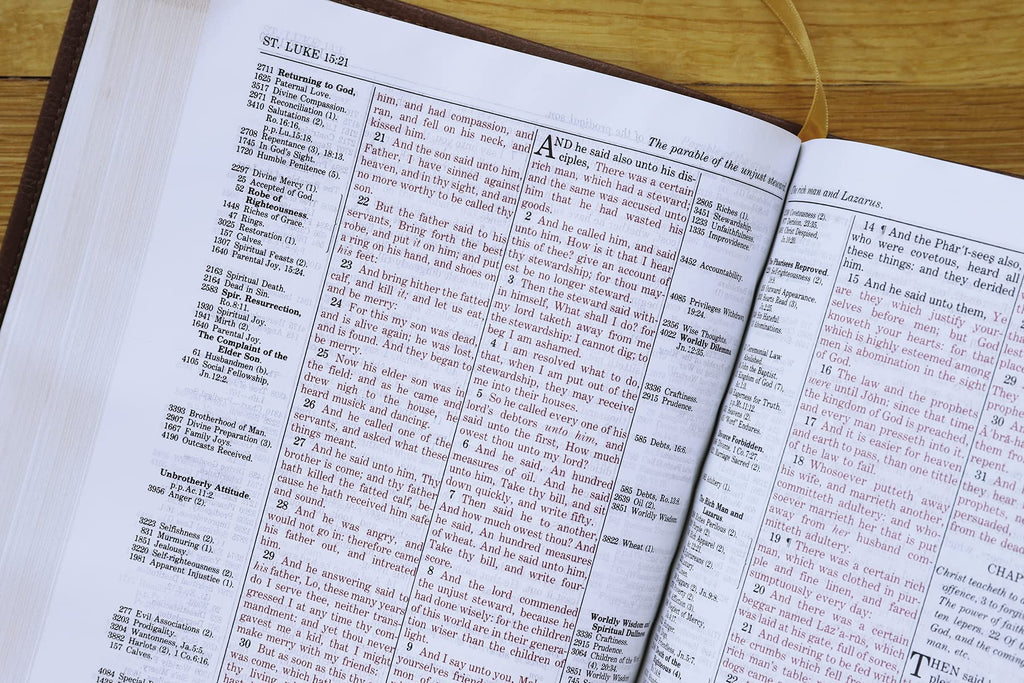 ST. LUKE 15:21
2711 Returning to God,
1625 Paternal Love.
3517 Divine Compassion.
2971 Reconciliation (1).
3410 Salutations (2),
Ro.16:16.
p.p.Lu.15:18,
2708 Repentance (3), 18:13.
1745 In God's Sight.
1720 Humble Penitence (5).
2297 Divine Mercy (1).
25 Accepted of God.
52 Robe of
Righteousness.
1448 Riches of Grace.
47 Rings.
3025 Restoration (1).
157 Calves.
1307 Spiritual Feasts (2).
1640 Parental Joy, 15:24.
2163 Spiritual Death.
2164 Dead in Sin.
2583 Spir. Resurrection,
Ro.8:11.
1930 Spiritual Joy.
1941 Mirth (2).
1640 Parental Joy.
The Complaint of the
Elder Son.
61 Husbandmen (b).
4105 Social Fellowship,
Jn.12:2.
3393 Brotherhood of Man.
2907 Divine Preparation (3).
1667 Family Joys.
4190 Outcasts Received.
Unbrotherly Attitude.
p.p.Ac.11:2.
3956 Anger (2).
3223 Selfishness (2).
831 Murmuring (1).
1851 Jealousy.
3220 Self-righteousness (2).
1981 Apparent Injustice (1).
277 Evil Associations (2).
3203 Prodigality.
3204 Wantonness, Ja.5:5.
3882 Harlots (1), 1 Co.6:16.
157 Calves.
4084 Special
him, and had compassion, and
ran, and fell on his neck, and
kissed him.
21 And the son said unto him,
Father, I have sinned against
heaven, and in thy sight, and am
no more worthy to be called thy
son.
22 But the father said to his
servants, Bring forth the best
robe, and put it on him; and put
a ring on his hand, and shoes on
his feet:
23 And bring hither the fatted
calf, and kill it; and let us eat,
and be merry:
24 For this my son was dead,
and is alive again; he was lost,
and is found. And they began to
be merry.
25 Now his elder son was in
the field: and as he came and
drew nigh to the house, he
heard musick and dancing.
26 And he called one of the
servants, and asked what these
things meant.
27 And he said unto him, Thy
brother is come; and thy father
hath killed the fatted calf, be-
cause he hath received him safe
and sound.
28 And he was angry, and
would not go in: therefore came
his father out, and intreated
him.
29 And he answering said to
his father, Lo, these many years
do I serve thee, neither trans-
gressed I at any time thy com-
mandment: and yet thou never
gavest me a kid, that I might
make merry with my friends:
30 But as soon as this thy son
was come, which hath
The parable of the unjust steward
AND he said also unto his dis-
ciples, There was a certain
rich man, which had a steward;
and the same was accused unto
him that he had wasted his
goods.
2 And he called him, and said
unto him, How is it that I hear
this of thee? give an account of
thy stewardship; for thou may-
est be no longer steward.
3 Then the steward said with-
in himself, What shall I do? for
my lord taketh away from me
the stewardship: I cannot dig; to
beg I am ashamed.
4 I am resolved what to do,
that, when I am put out of the
stewardship, they may receive
me into their houses.
5 So he called every one of his
lord's debtors unto him, and
said unto the first, How much
owest thou unto my lord?
6 And he said, An hundred
measures of oil. And he said
unto him, Take thy bill, and sit
down quickly, and write fifty.
7 Then said he to another,
And how much owest thou? And
he said, An hundred measures
of wheat. And he said unto him,
Take thy bill, and write four-
score.
8 And the lord commended
the unjust steward, because he
had done wisely: for the children
of this world are in their genera-
tion wiser than the children of
light.
9 And I say unto you, Make
yourselves friends
2805 Riches (1).
3451 Stewardship.
1233 Unfaithfulness.
1335 Improvidence.
3452 Accountability.
4085 Privileges Withdrawn
19:24.
2356 Wise Thoughts.
4022 Worldly Dilemma
Jn.12:35.
3336 Craftiness.
2915 Prudence.
585 Debts, 16:6.
585 Debts, Ro.13:8.
2639 Oil (2).
3851 Worldly Wisdom
3822 Wheat (1).
Worldly Wisdom
Spiritual Dullness
3336 Craftiness.
2915 Prudence.
3064 Children of the
(4), 20:34
3851 Worldly Wis
The rich man and Lazarus.
Covetousness (2).
Derision, 23:35.
Christ Despised,
Pharisees Reproved.
Self-righteousness (2),
Outward Appearance.
Hearts Read (3),
Ceremonial Law
John the Baptist,
Kingdom of God (7),
Eagerness for Truth.
Divorce Forbidden.
1 Co.7:27.
Marriage Sacred (2).
Rich Man and
Lazarus.
14 ¶ And the Phâr'i-sees also,
who were covetous, heard all
these things: and they derided
him.
15 And he said unto them, Ye
are they which justify your-
selves before men; but God
knoweth your hearts: for that
which is highly esteemed among
men is abomination in the sight
of God.
16 The law and the prophets
were until John: since that time
the kingdom of God is preached,
and every man presseth into it.
17 And it is easier for heaven
and earth to pass, than one tittle
of the law to fail.
18 Whosoever putteth away
his wife, and marrieth another,
committeth adultery: and who-
soever marrieth her that is put
away from her husband com-
mitteth adultery.
19 ¶ There was a certain rich
man, which was clothed in pur-
ple and fine linen, and fared
sumptuously every day:
20 And there was a certain
beggar named Laz'a-rus, which
was laid at his gate, full of sores,
21 And desiring to be fed with
the crumbs which fell from the
rich man's table:
dogs came
29
30
A'bra-ham
repent.
31 And
they hear
prophets,
persuaded,
from the dead
CHAP
Christ teacheth to
offence, 3 to forgive
The power of faith
ten lepers, 22 Of
God, and the coming
man, etc.
THEN said